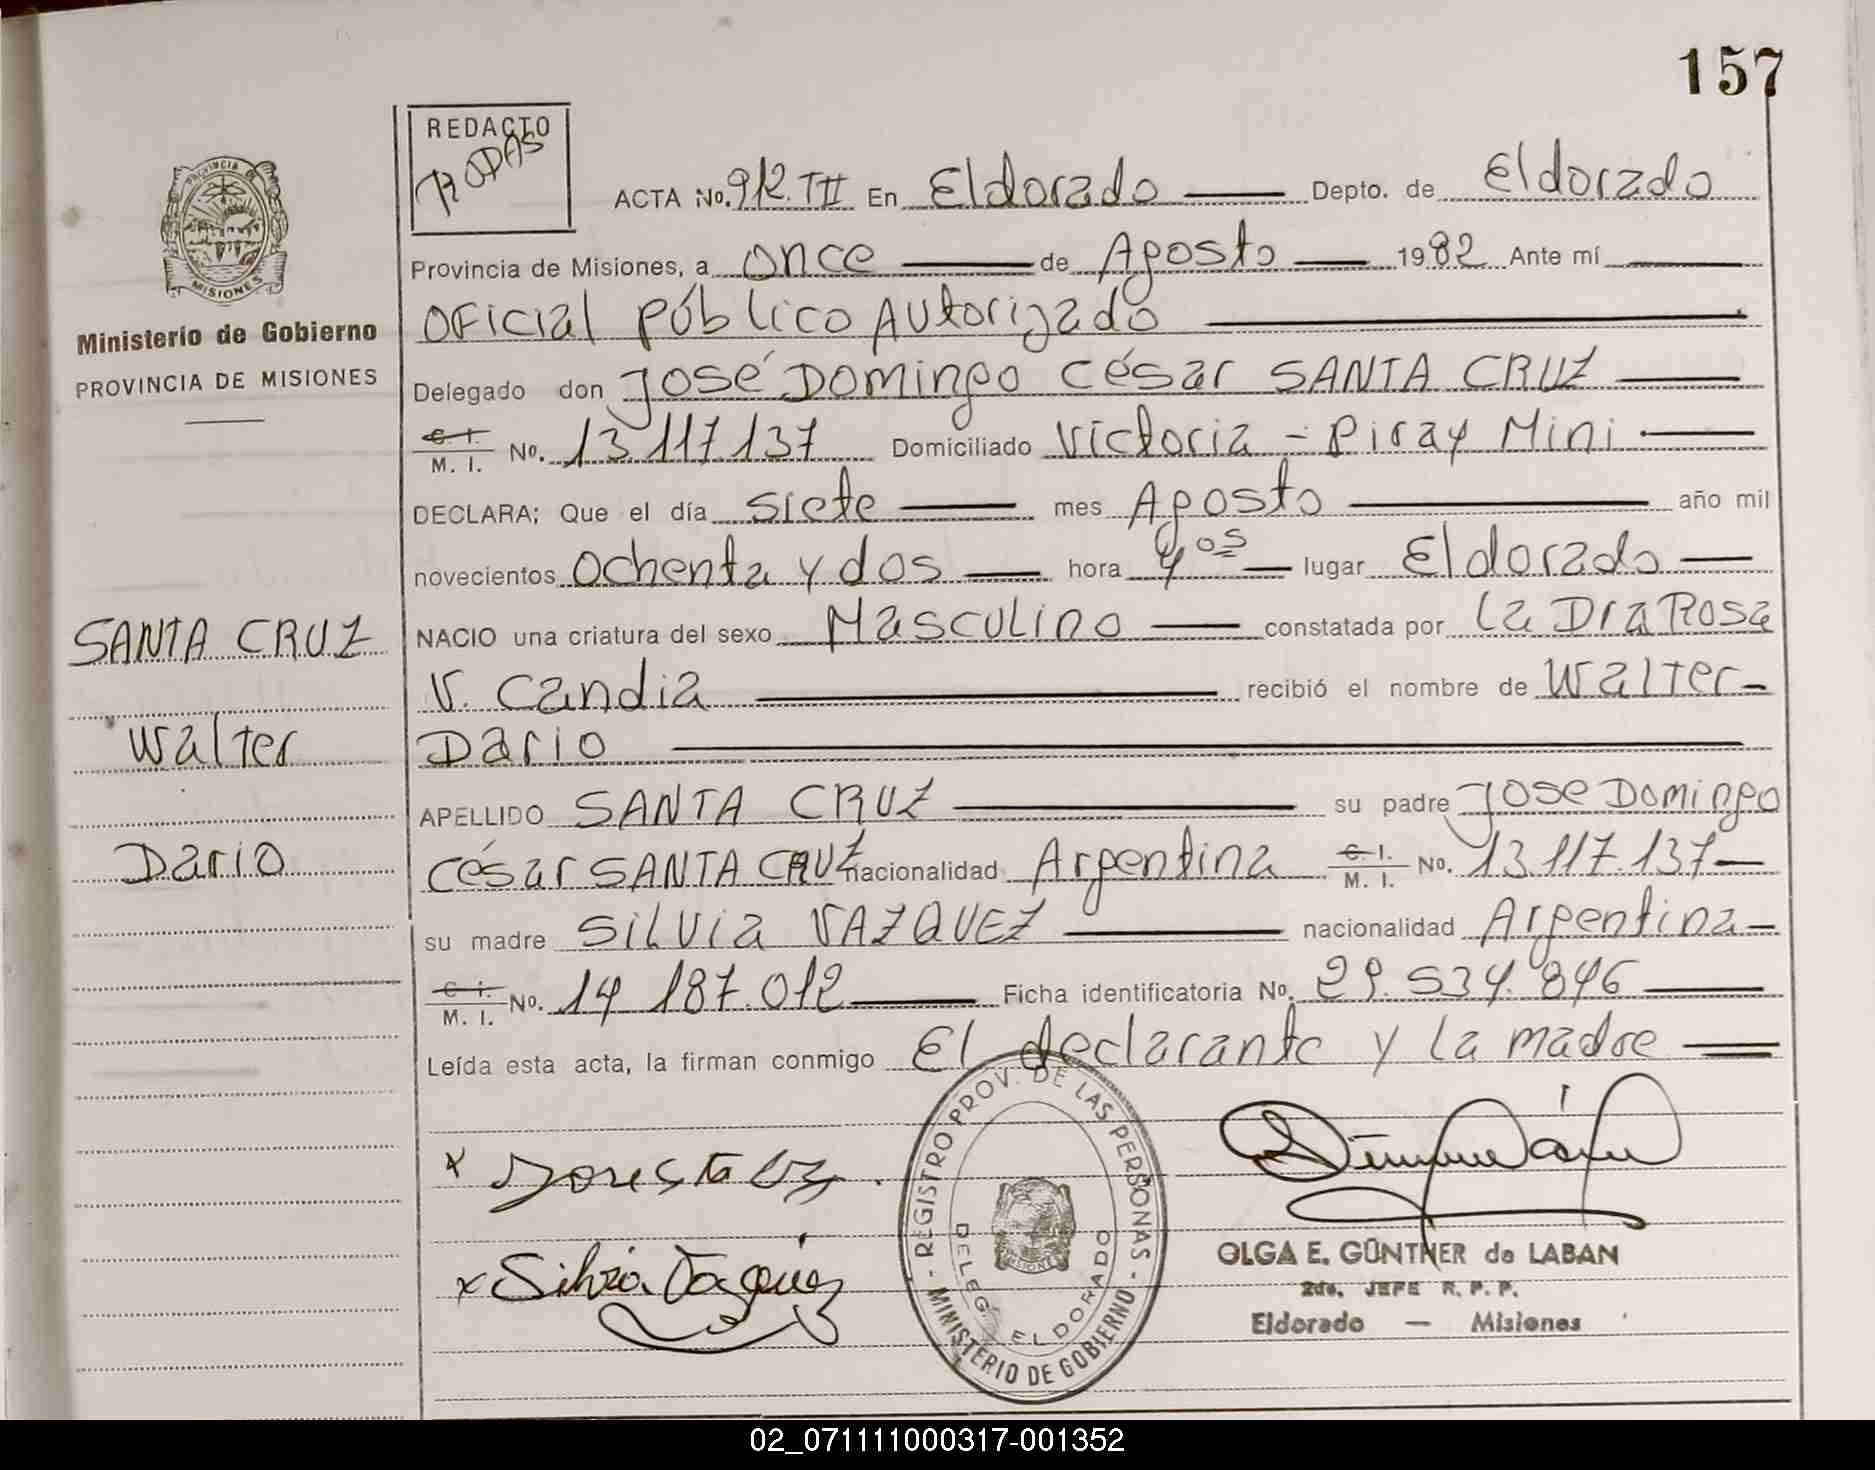 157
REDACTO
RODAS
ACTA No. 912. TII En Eldorado Depto. de Eldorado
Provincia de Misiones, a once de Agosto 1982 Ante mí
Oficial Público Autorizado
Delegado don José Domingo César SANTA CRUZ
C. I. / M. I. No. 13.117.137 Domiciliado Victoria - Piray Mini
DECLARA; Que el día siete mes Agosto año mil
novecientos ochenta y dos hora 4 05 lugar Eldorado
NACIO una criatura del sexo Masculino constatada por la Dra Rosa
V. Candia recibió el nombre de Walter
Dario
APELLIDO SANTA CRUZ su padre Jose Domingo
César SANTA CRUZ nacionalidad Argentina C. I. / M. I. No. 13.117.137
su madre Silvia VAZQUEZ nacionalidad Argentina
C. I. / M. I. No. 14 187.012 Ficha identificatoria No. 29.534.846
Leída esta acta, la firman conmigo El declarante y la madre
PROVINCIA DE
MISIONES
Ministerio de Gobierno
PROVINCIA DE MISIONES
SANTA CRUZ
Walter
Dario
x
x Silvia Vazquez
REGISTRO PROV. DE LAS PERSONAS - MINISTERIO DE GOBIERNO -
DELEG. ELDORADO
OLGA E. GÜNTHER de LABAN
2do. JEFE R. P. P.
Eldorado — Misiones
02_071111000317-001352